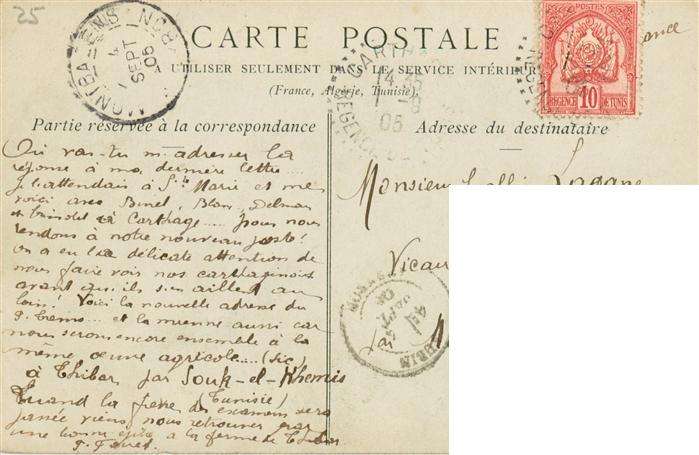 25
CARTE POSTALE
A UTILISER SEULEMENT DANS LE SERVICE INTÉRIEUR
(France, Algérie, Tunisie).
POSTES
RÉGENCE DE TUNIS
10
SEPT
05
05
Partie réservée à la correspondance
Adresse du destinataire
Où vas-tu m'adresser la
réponse à ma dernière lettre....
Je l'attendais à Ste Marie et me
voici avec Binel, Blan, Delmas
et à Carthage.... pour nous
rendons à notre nouveau poste!
On a eu la délicate attention de
nous faire voir nos carthaginois
avant qu'ils s'en aillent au
loin! Voici la nouvelle adresse du
P. et la mienne aussi car
nous serons encore ensemble à la
même œuvre agricole.... (sic)
à Thibar par Souk-el-Khemis
(Tunisie)
Quand la fièvre des examens sera
passée viens nous retrouver par
une bonne à la ferme de Thibar
Monsieur l'abbé
Vicai